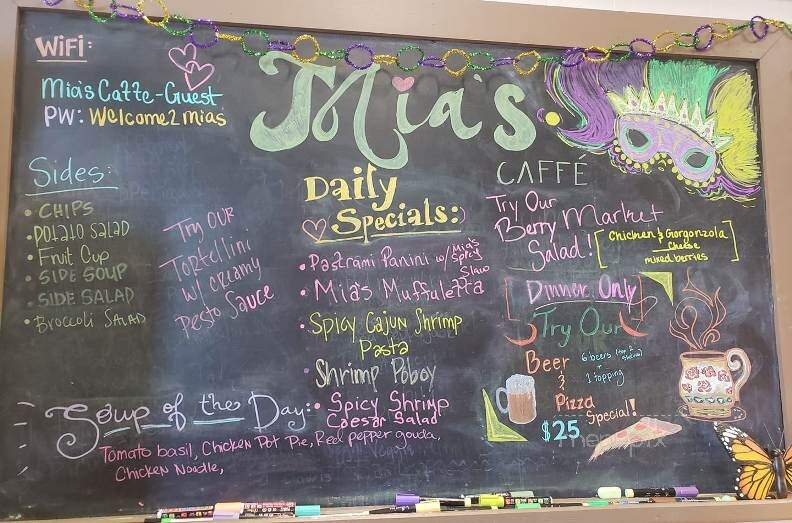 WiFi:
Mia's Caffe-Guest
PW: Welcome2mias
Mia's
CAFFÉ
Sides:
• CHIPS
• Potato Salad
• Fruit Cup
• SIDE SOUP
• SIDE SALAD
• Broccoli SALAD
Try OUR
Tortellini
w/ creamy
Pesto Sauce
Daily
Specials:
• Pastrami Panini w/ Mia's Spicy Slaw
• Mia's Muffuletta
• Spicy Cajun Shrimp
Pasta
Shrimp Poboy
• Spicy Shrimp
Caesar Salad
Try Our
Berry Market
Salad!
[Chicken & Gorgonzola
Cheese
mixed berries]
Dinner Only
Try Our
Beer
&
Pizza
Special!
$25
6 beers
+
1 topping
Soup of the Day:
Tomato basil, Chicken Pot Pie, Red pepper gouda,
Chicken Noodle,